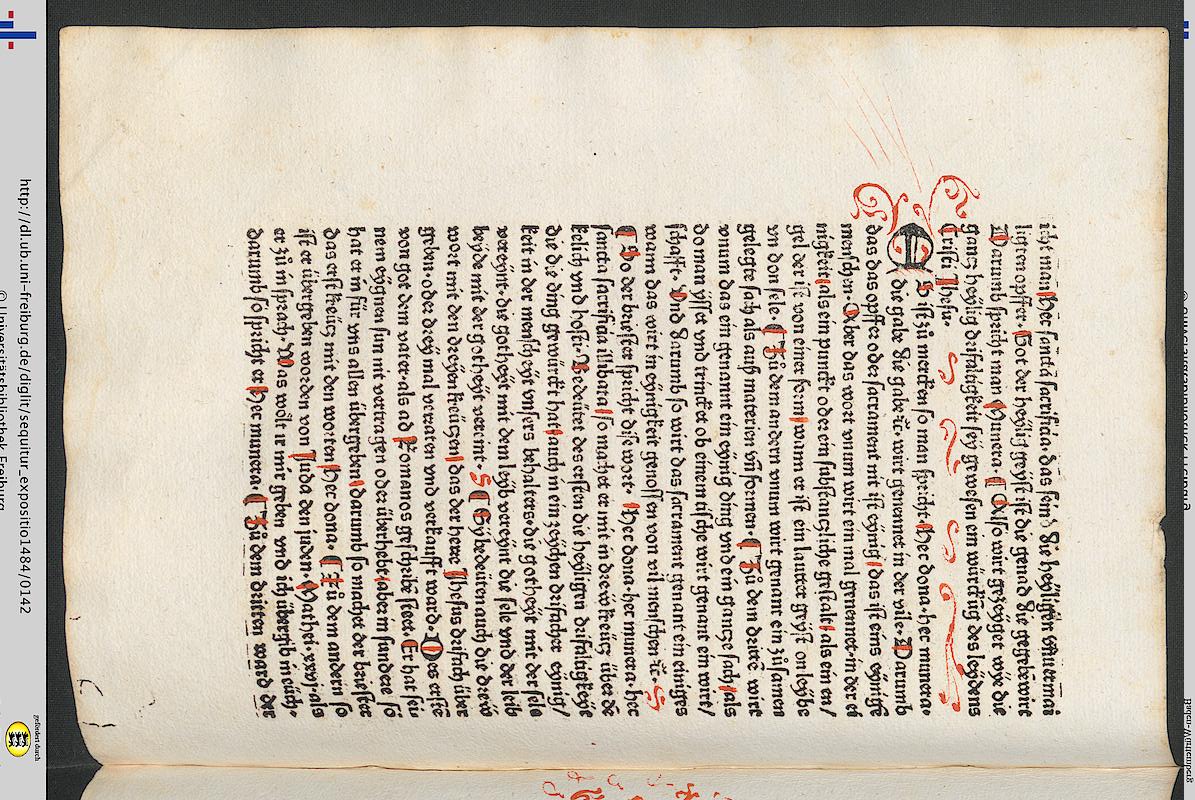 icht man. Hec sancta sacrificia. das sein die heyligen vnuermai
ligten opffer. Got der heylig geyst ist die genad die gegeben wirt
Darumb spricht man Munera. Disso wirt gezeyget wye die
gantz heylig drifaltigkeit sey gewesen ein würckug des leydens
Cristi Jhesu.
Es ist zů mercken so man spricht. Hec dona. hec munera.
die gabe die gabe ⁊c wirt genennet in der vile. Darumb
das das opffer oder sacrament nit ist eynig / das ist eins eynige
menschen. Aber das wort vnum wirt ein mal genennet. in der ei
nigkeit / als ein punckt oder ein substanczliche gestalt / als ein en /
gel der ist von einer form / wann er ist ein lauter geyst on leybe
vn don sele. Zů dem andern vnum wirt genant ein zůsamen
gelegte sach als auß materien vn formen. Zů dem dritē wirt
vnum das ein genannt ein eynig ding vnd ein gantze sach / als
do man ysset vnd trincket ob einem tische wirt genant ein wirt /
schafft. Vnd darumb so wirt das sacrament genant ein einiges
wann das wirt in eynigkeit genossen von vil menschen ⁊c.
So der briester spricht dise wort. Hec dona. hec munera. hec
sancta sacrificia illibata / so machet er mit in drew kreücz über dē
kelich vnd hosti. Bedeütet des ersten die heyligen drifaltigkeyt
die die ding gewürckt hat / auch in ein zeychen drifacher eynig /
keit in der menscheyt vnsers behalters. die gotheyt mit der sele
vereynt. die gotheyt mit dem leyb vereynt die sele vnd der leib
beyde mit der gotheyt vereint. Sy bedeüten auch die drew
wort mit den dreyen kreüczen / das der herre Jhesus drifach über
geben. oder drey mal verraten vnd verkaufft ward. Des erste
von got dem vater. als ad Romanos geschribē steet. Er hat sei
nem eygnen sun nit vertragen oder überhebt / aber in sundere so
hat er in für vns allen übergeben / darumb so machet der briester
das erst kreücz mit den worten Hec dona. Zů dem andern so
ist er übergeben worden von Juda den juden. Mathei. xxvj. als
er zů in sprach. Was wölt ir mir geben vnd ich übergib in eüch.
darumb so spricht er Hec munera. Zů dem dritten ward der
http://dl.ub.uni-freiburg.de/diglit/sequitur_expositio1484/0142
© Universitätsbibliothek Freiburg
gefördert durch
Baden-Württemberg